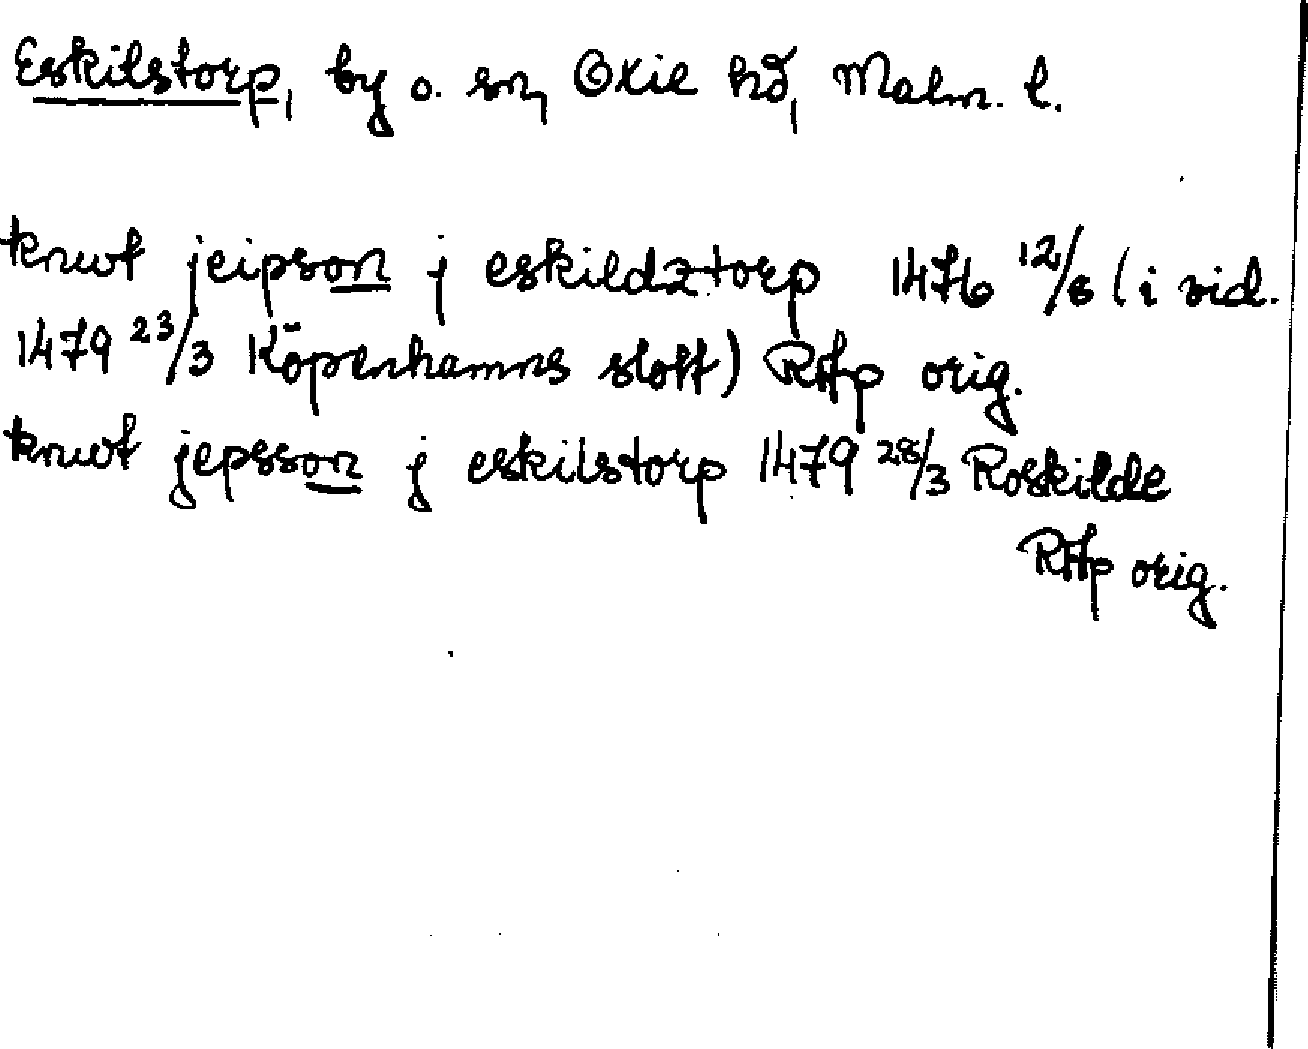 Eskilstorp, by o. sn, Oxie hd, Malm. l.
knwt jeipson j eskildztorp 1476 12/8 (i vid.
1479 23/3 Köpenhamns slott) RAp orig.
knwt jepsson j eskilstorp 1479 28/3 Roskilde
RAp orig.